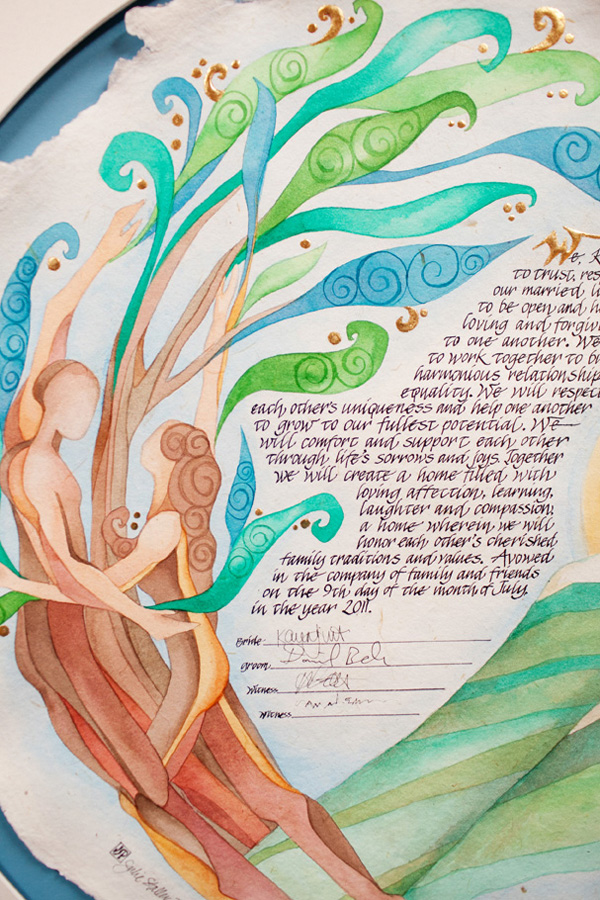 We, K
to trust, res
our married li
to be open and h
loving and forgivi
to one another. We
to work together to b
harmonious relationship
equality. We will respect
each other's uniqueness and help one another
to grow to our fullest potential. We
will comfort and support each other
through life's sorrows and joys. Together
we will create a home filled with
loving affection, learning,
laughter and compassion;
a home wherein we will
honor each other's cherished
family traditions and values. Avowed
in the company of family and friends
on the 9th day of the month of July
in the year 2011.
Bride
Groom
Witness
Witness